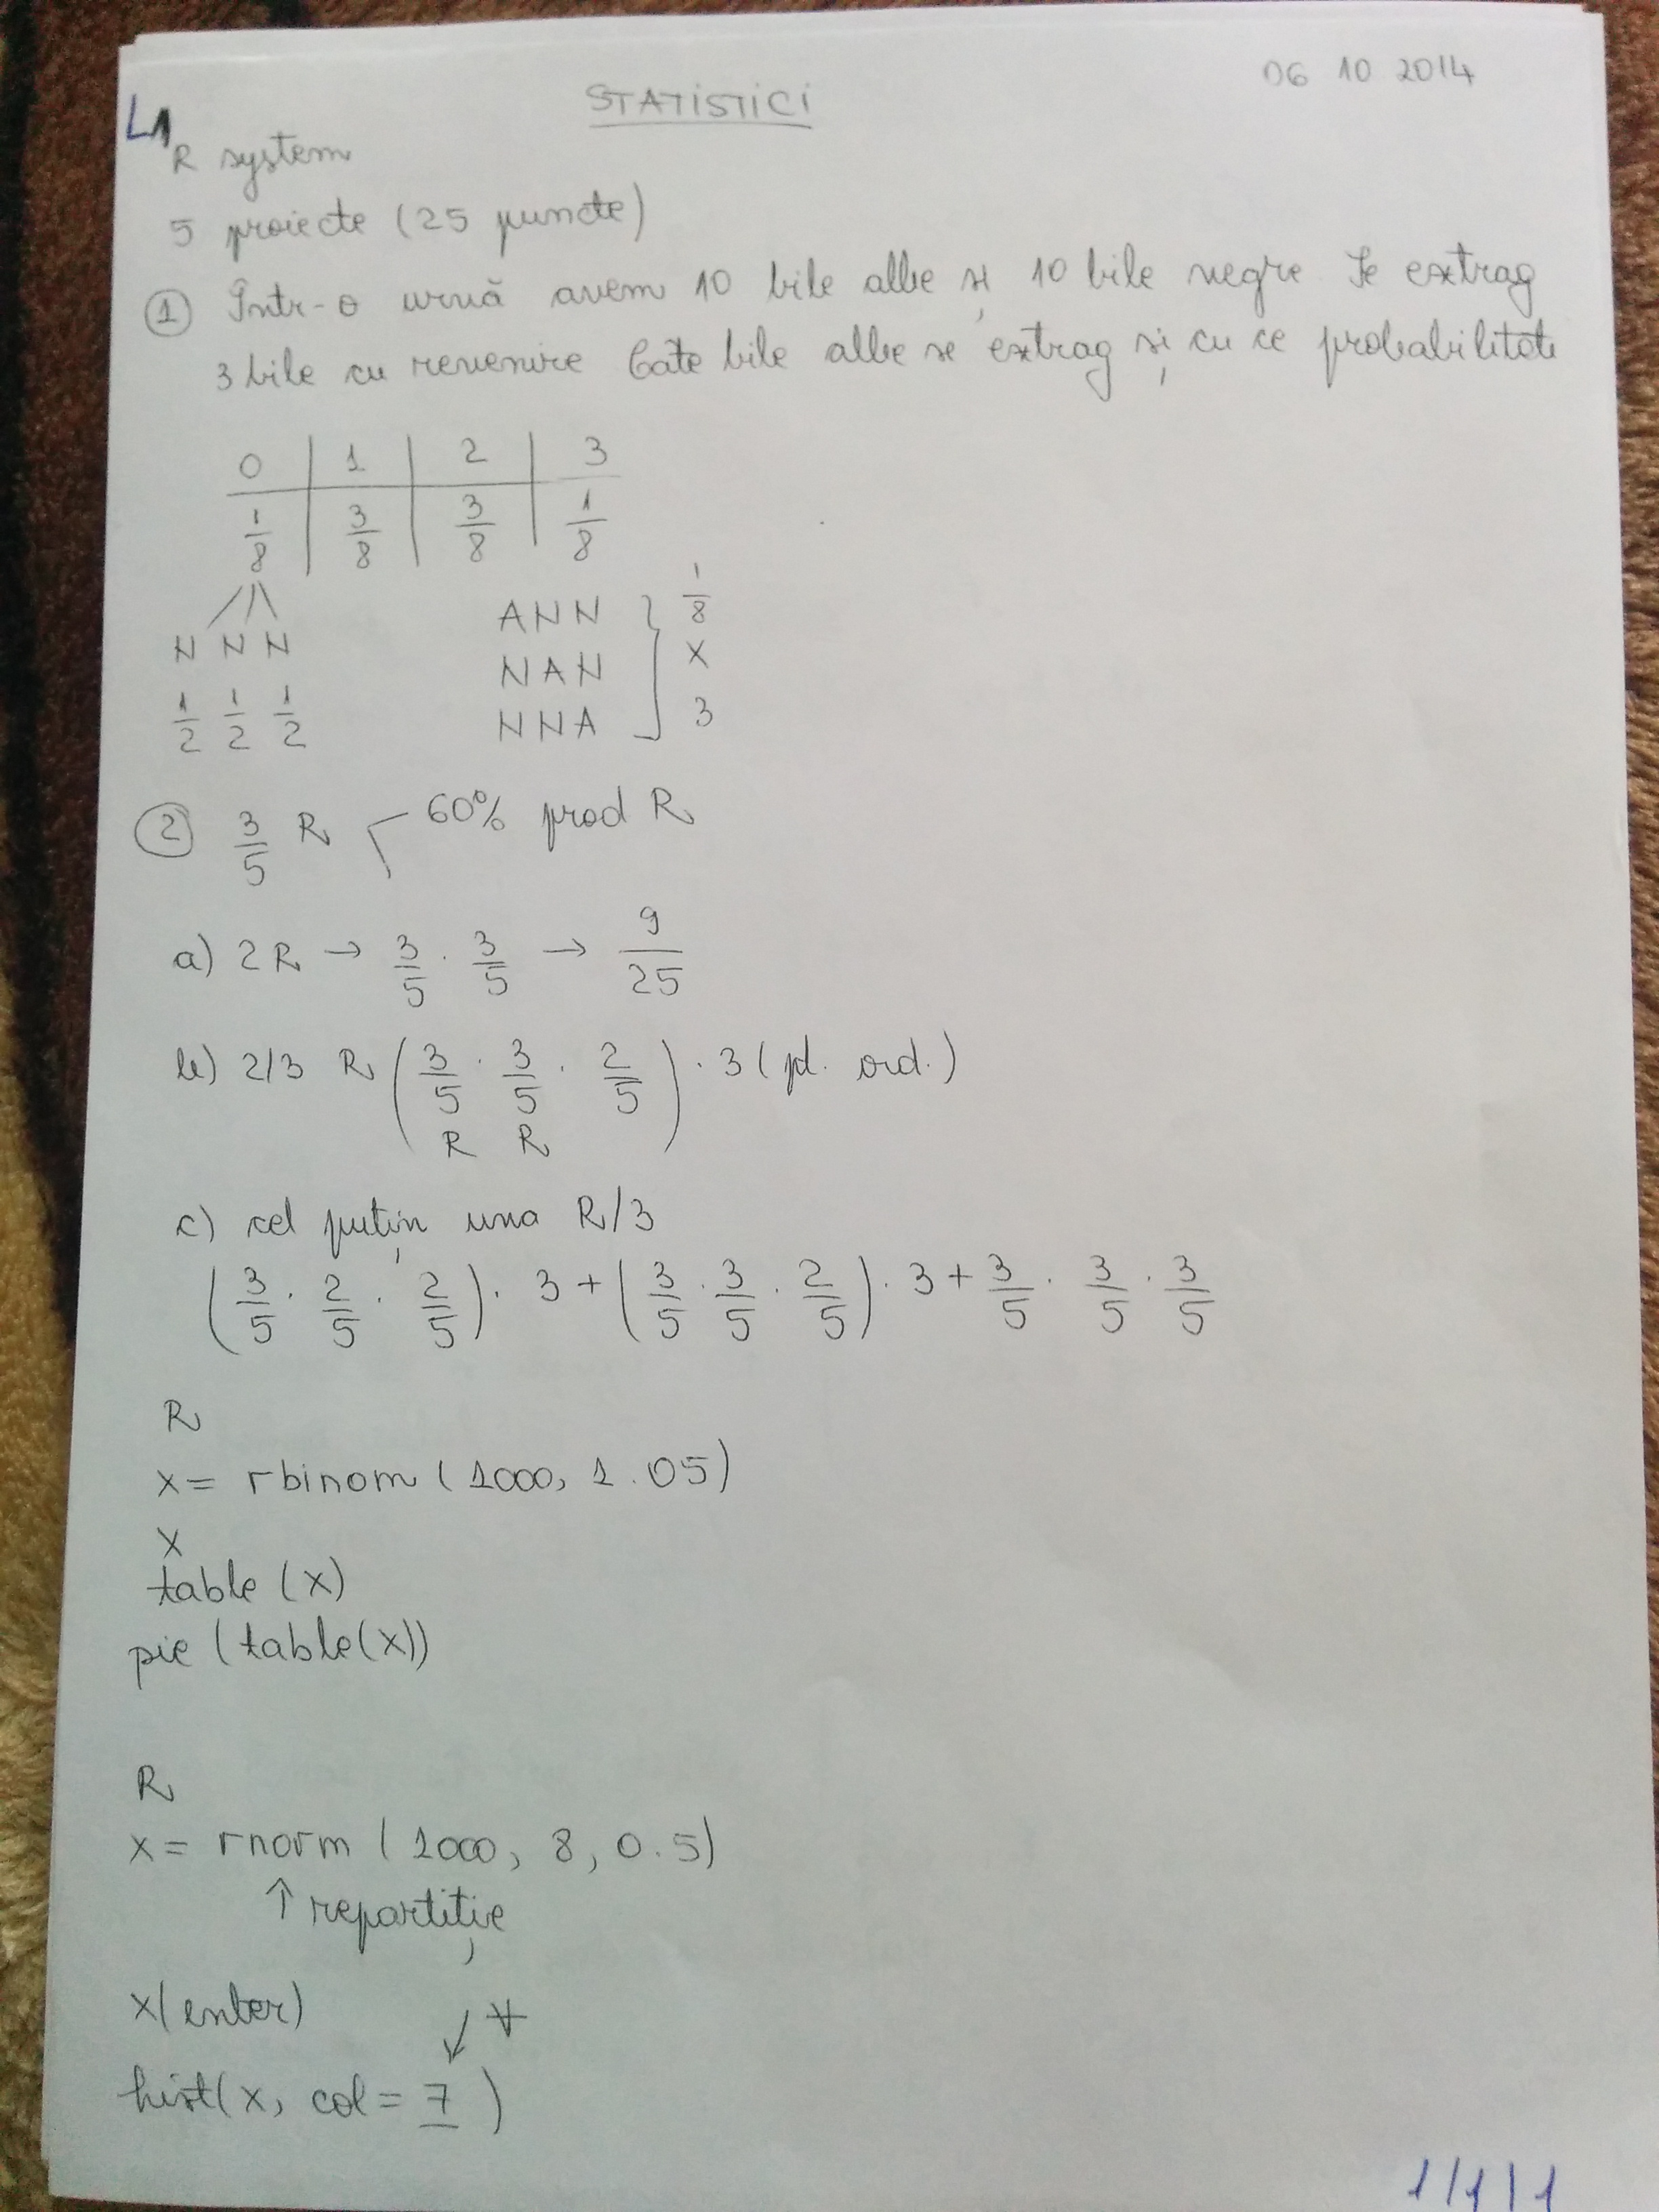 06 10 2014
STATISTICI
L1
R system
5 proiecte (25 puncte)
① Într-o urnă avem 10 bile albe și 10 bile negre Se extrag
3 bile cu revenire Câte bile albe se extrag și cu ce probabilitate
0 | 1 | 2 | 3
1/8 | 3/8 | 3/8 | 1/8
N N N
1/2 1/2 1/2
ANN
NAN
NNA
} 1/8 x 3
② 3/5 R 60% prod R
a) 2R → 3/5 · 3/5 → 9/25
b) 2/3 R (3/5 · 3/5 · 2/5) · 3 (pt. ord.)
R R
c) cel puțin una R/3
(3/5 · 2/5 · 2/5) · 3 + (3/5 · 3/5 · 2/5) · 3 + 3/5 · 3/5 · 3/5
R
x = rbinom (1000, 1.05)
x
table (x)
pie (table(x))
R
x = rnorm (1000, 8, 0.5)
↑ repartiție
x(enter)
↙ ∀
hist(x, col = 7)
1/1/1